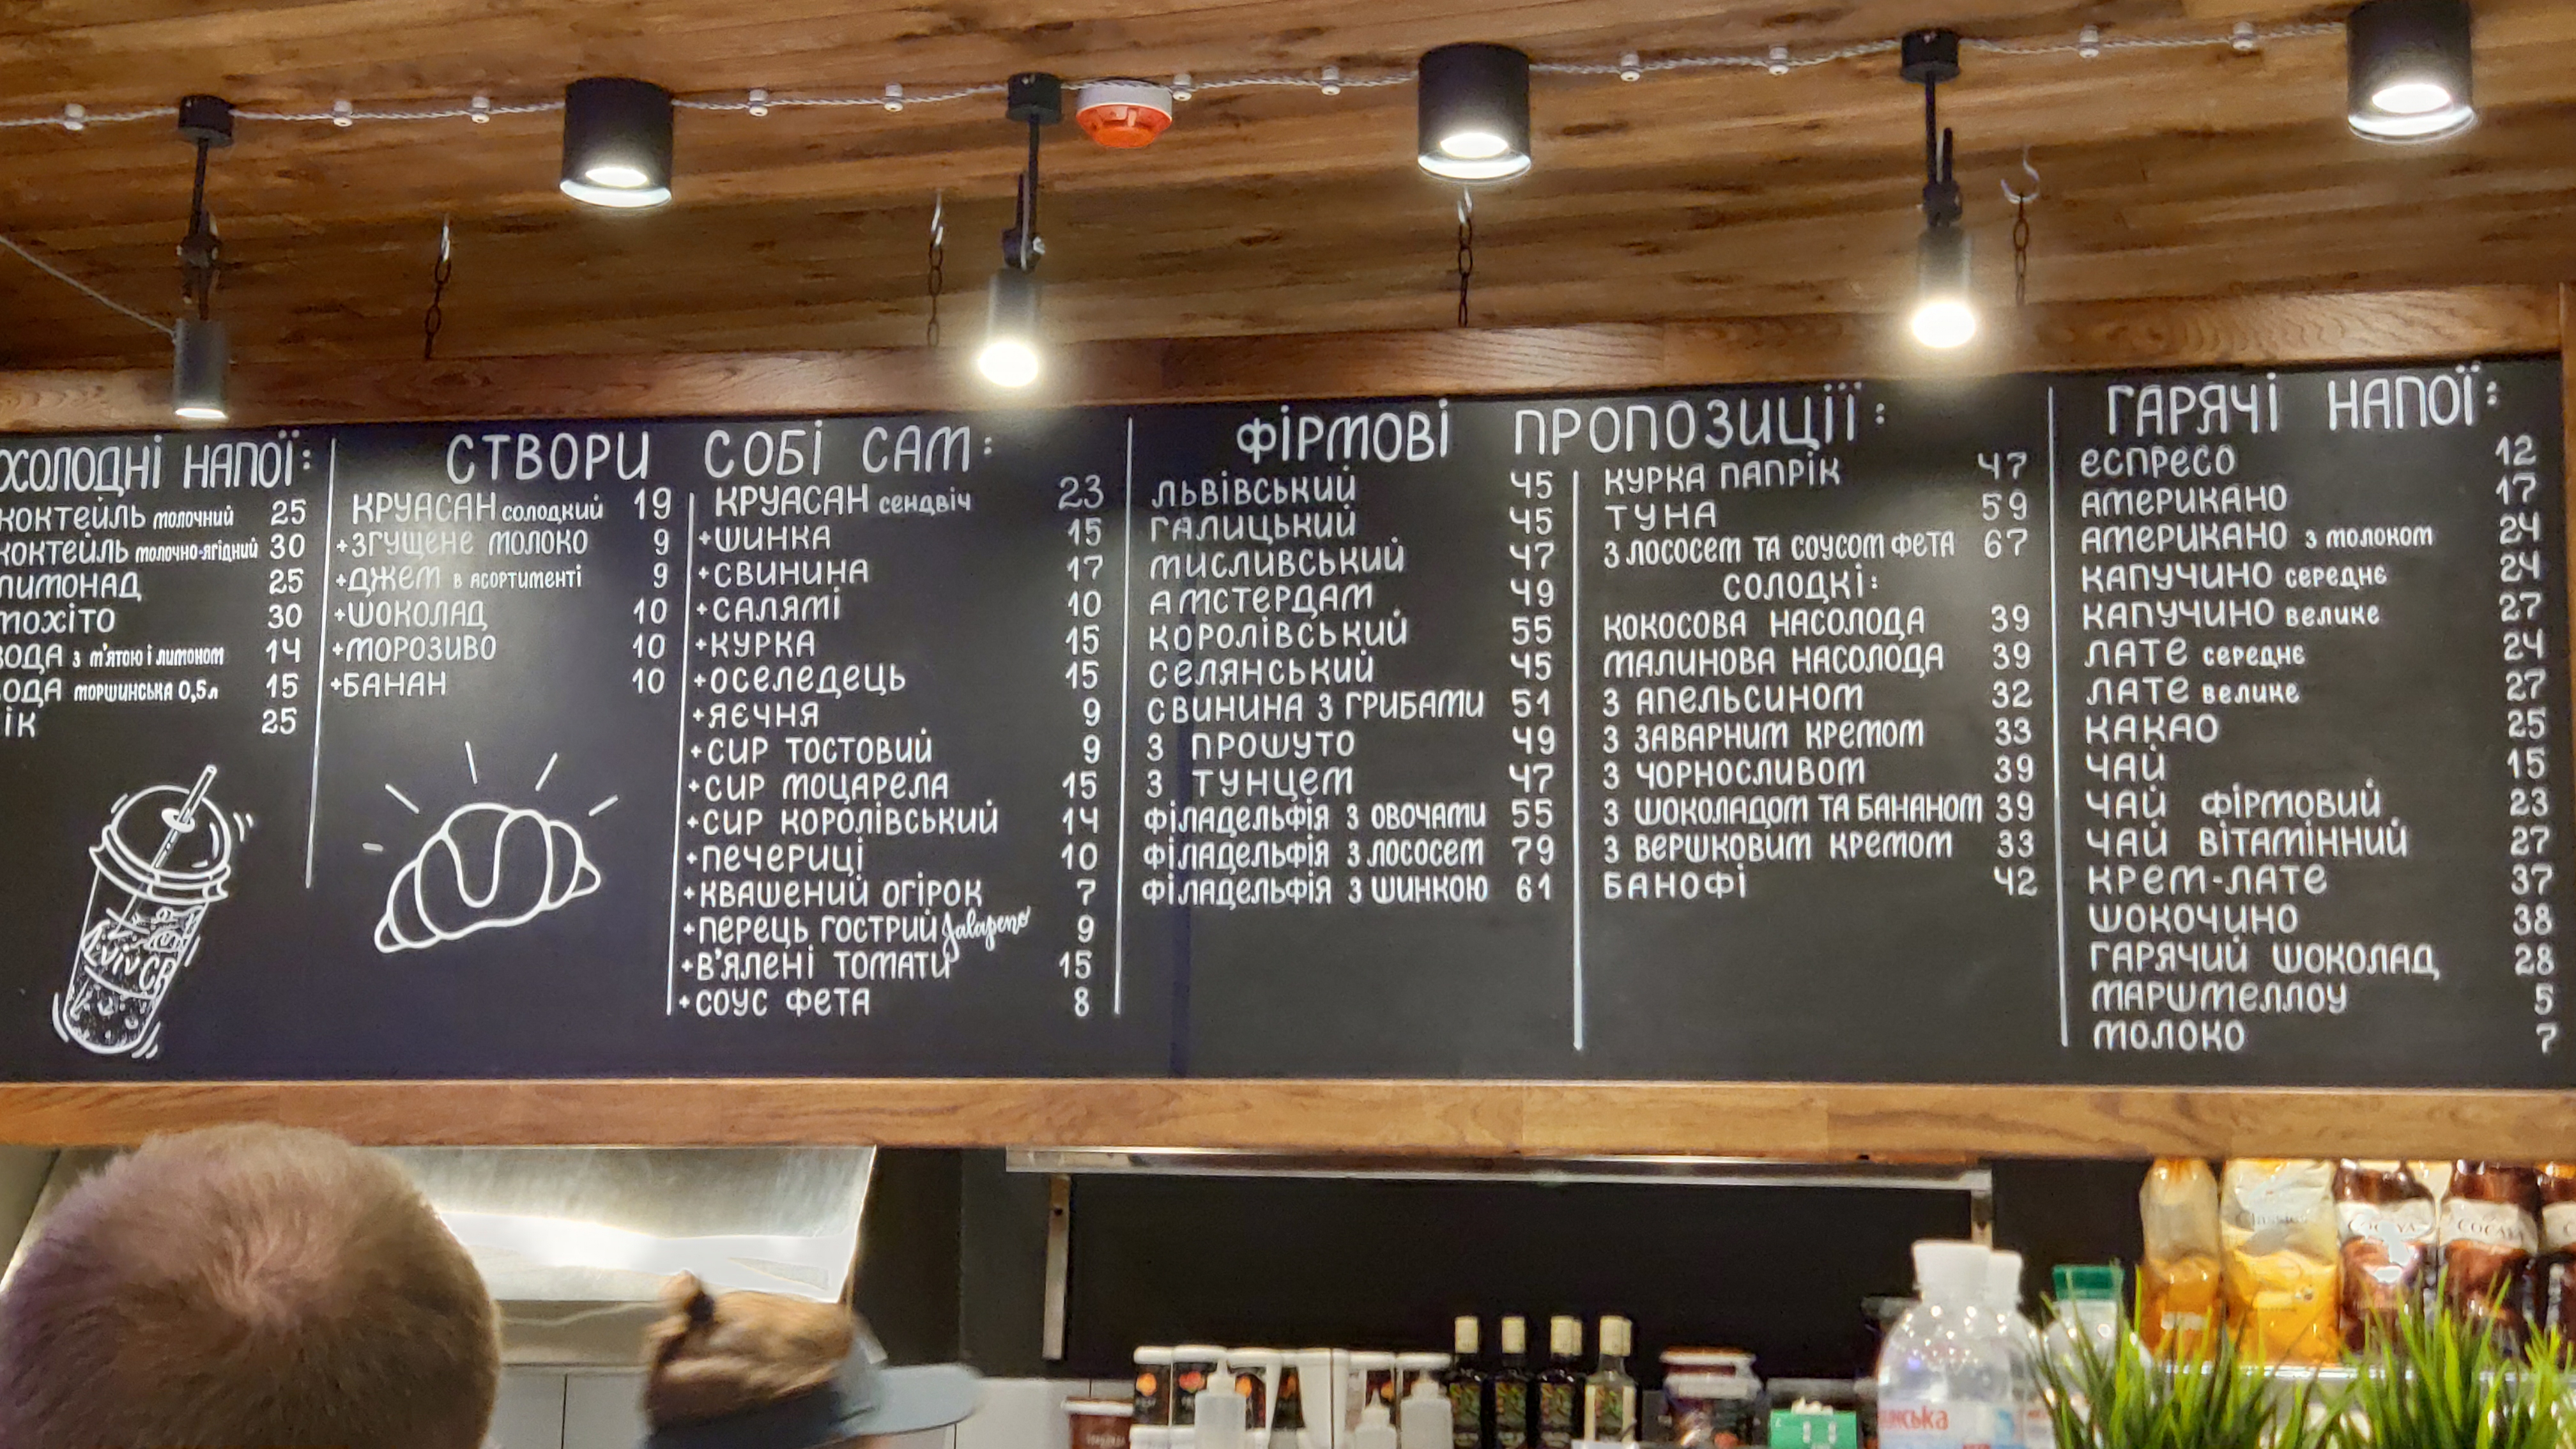 ХОЛОДНІ НАПОЇ:
КОКТЕЙЛЬ молочний 25
КОКТЕЙЛЬ молочно-ягідний 30
ЛИМОНАД 25
МОХІТО 30
ВОДА з м'ятою і лимоном 14
ОДА моршинська 0,5л 15
ІК 25
Lviv CR
СТВОРИ СОБІ САМ:
КРУАСАН солодкий 19
+ЗГУЩЕНЕ МОЛОКО 9
+ДЖЕМ в асортименті 9
+ШОКОЛАД 10
+МОРОЗИВО 10
+БАНАН 10
КРУАСАН сендвіч 23
+ШИНКА 15
+СВИНИНА 17
+САЛЯМІ 10
+КУРКА 15
+ОСЕЛЕДЕЦЬ 15
+ЯЄЧНЯ 9
+СИР ТОСТОВИЙ 9
+СИР МОЦАРЕЛА 15
+СИР КОРОЛІВСЬКИЙ 14
+ПЕЧЕРИЦІ 10
+КВАШЕНИЙ ОГІРОК 7
+ПЕРЕЦЬ ГОСТРИЙ Jalapeno 9
+В'ЯЛЕНІ ТОМАТИ 15
+СОУС ФЕТА 8
ФІРМОВІ ПРОПОЗИЦІЇ:
ЛЬВІВСЬКИЙ 45
ГАЛИЦЬКИЙ 45
МИСЛИВСЬКИЙ 47
АМСТЕРДАМ 49
КОРОЛІВСЬКИЙ 55
СЕЛЯНСЬКИЙ 45
СВИНИНА З ГРИБАМИ 51
З ПРОШУТО 49
З ТУНЦЕМ 47
ФІЛАДЕЛЬФІЯ З ОВОЧАМИ 55
ФІЛАДЕЛЬФІЯ З ЛОСОСЕМ 79
ФІЛАДЕЛЬФІЯ З ШИНКОЮ 61
КУРКА ПАПРІК 47
ТУНА 59
З ЛОСОСЕМ ТА СОУСОМ ФЕТА 67
СОЛОДКІ:
КОКОСОВА НАСОЛОДА 39
МАЛИНОВА НАСОЛОДА 39
З АПЕЛЬСИНОМ 32
З ЗАВАРНИМ КРЕМОМ 33
З ЧОРНОСЛИВОМ 39
З ШОКОЛАДОМ ТА БАНАНОМ 39
З ВЕРШКОВИМ КРЕМОМ 33
БАНОФІ 42
ГАРЯЧІ НАПОЇ:
ЕСПРЕСО 12
АМЕРИКАНО 17
АМЕРИКАНО з молоком 24
КАПУЧИНО середнє 24
КАПУЧИНО велике 27
ЛАТЕ середнє 24
ЛАТЕ велике 27
КАКАО 25
ЧАЙ 15
ЧАЙ ФІРМОВИЙ 23
ЧАЙ ВІТАМІННИЙ 27
КРЕМ-ЛАТЕ 37
ШОКОЧИНО 38
ГАРЯЧИЙ ШОКОЛАД 28
МАРШМЕЛЛОУ 5
МОЛОКО 7
Classic